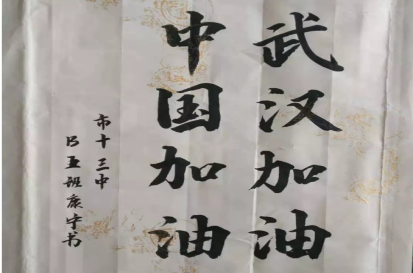 武汉加油
中国加油
市十三中
吕五班康宁书